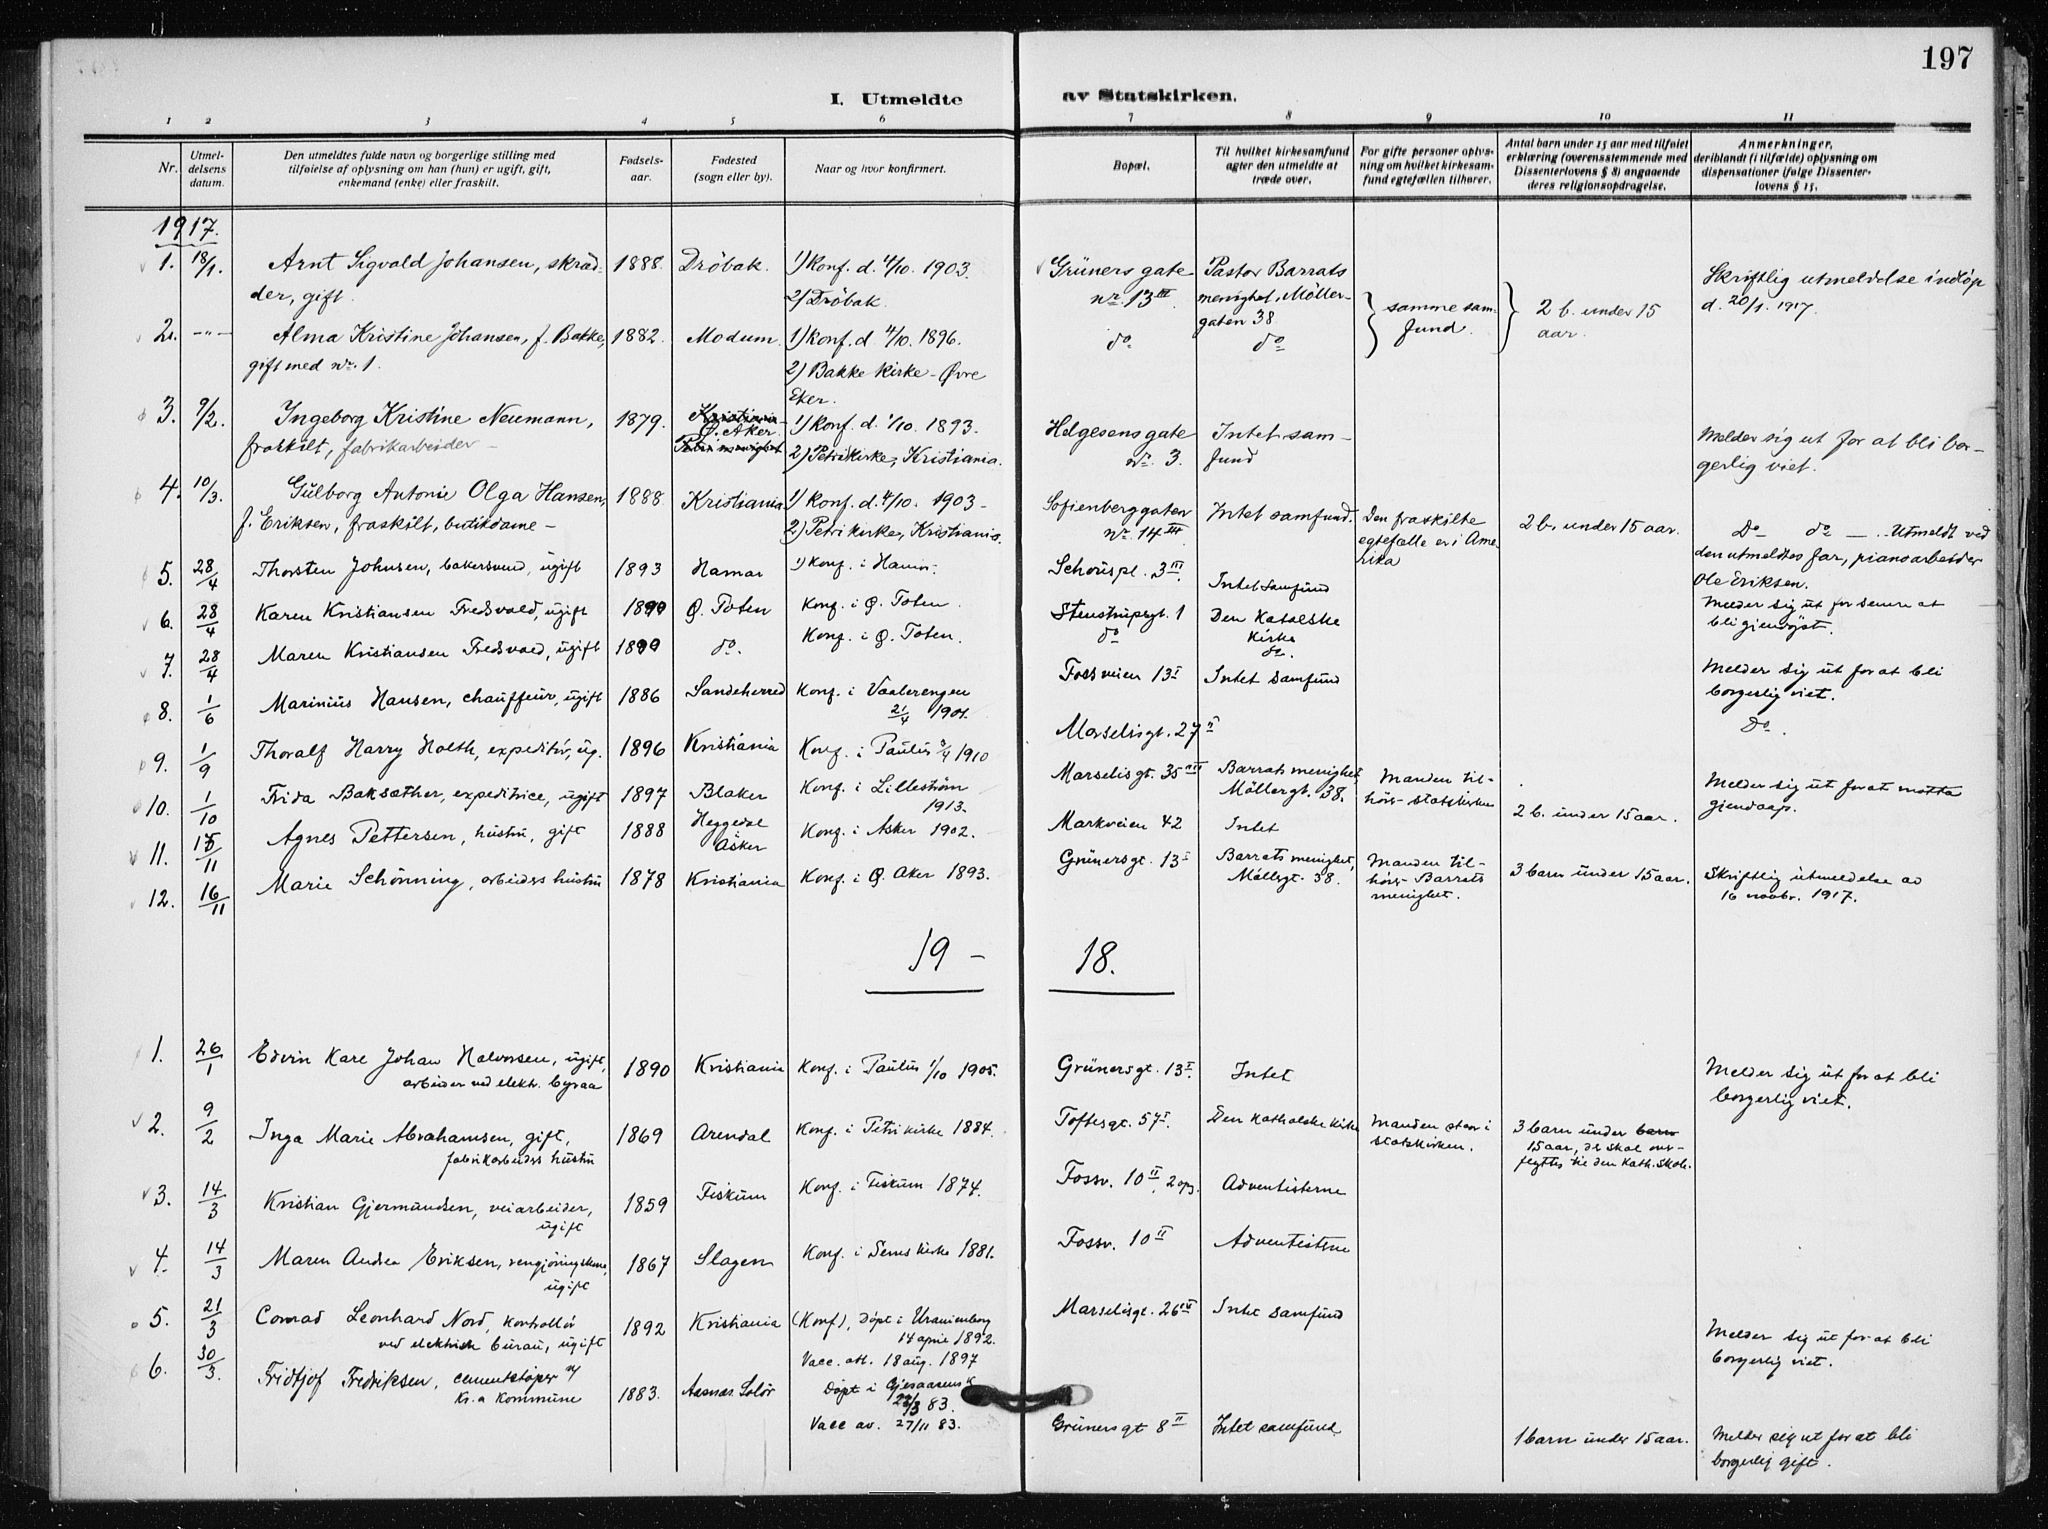 197
I. Utmeldte av Statskirken.
1 2 3 4 5 6 7 8 9 10 11
Nr.
Utmel-
delsens
datum.
Den utmeldtes fulde navn og borgerlige stilling med
tilføielse af oplysning om han (hun) er ugift, gift,
enkemand (enke) eller fraskilt.
Fødsels-
aar.
Fødested
(sogn eller by).
Naar og hvor konfirmert.
Bopæl.
Til hvilket kirkesamfund
agter den utmeldte at
træde over.
For gifte personer oplys-
ning om hvilket kirkesam-
fund egtefællen tilhører.
Antal barn under 15 aar med tilføiet
erklæring (overensstemmende med
Dissenterlovens § 8) angaaende
deres religionsopdragelse.
Anmerkninger,
deriblandt (i tilfælde) oplysning om
dispensationer ifølge Dissenter-
lovens § 15.
1917.
1. 18/1. Arnt Sigvald Johansen, skræd- 1888. Dröbak. 1) Konf. d. 4/10. 1903. Grüners gate Pastor Barrats Skriftlig utmeldelse indlöp
der, gift. 2) Dröbak. nr. 13 III menighet, Möller- samme sam- 2 b. under 15 d. 20/1. 1917.
gaten 38 fund. aar.
2. -"- Alma Kristine Johansen, f. Bakke, 1882. Modum. 1) Konf. d. 4/10. 1896. do do
gift med nr. 1. 2) Bakke kirke - Øvre
Eker.
3. 9/2. Ingeborg Kristine Neumann, 1879. Kristiania Ø. Aker. 1) Konf. d. 1/10. 1893. Helgesens gate Intet sam- Melder sig ut for at bli bor-
fraskilt, fabrikarbeider - Petri menighet 2) Petri kirke, Kristiania. nr. 3. fund gerlig viet.
4. 10/3. Gülborg Antonie Olga Hansen, 1888. Kristiania 1) Konf. d. 4/10. 1903 - Sofienberggaten Intet samfund. Den fraskilte 2 b. under 15 aar. Do do - Utmeldt ved
f. Eriksen, fraskilt, butikdame - 2) Petri kirke, Kristiania. nr. 14 III egtefælle er i Ame- den utmeldtes far, pianoarbeider
rika Ole Eriksen.
5. 28/4 Thorsten Johnsen, bakersvend, ugift 1893 Hamar 1) Konf. i Hamar. Schouspl. 3 III. Intet samfund
6. 28/4 Karen Kristiansen Fredsvold, ugift 1899 Ø. Toten Konf. i Ø. Toten. Stenstrupsgt. 1 Den Katolske Melder sig ut for senere at
Kirke bli gjendöpt.
7. 28/4 Maren Kristiansen Fredsvold, ugift 1899 do. Konf. i Ø. Toten. do do.
8. 1/6 Marinius Hansen, chauffeur, ugift 1886 Sandeherred Konf. i Vaalerengen Fossveien 13 I Intet samfund Melder sig ut for at bli
21/4 1901. borgerlig viet.
9. 1/9 Thoralf Harry Holth, expeditör, ug. 1896 Kristiania Konf. i Paulus 3/4 1910 Marselisgt. 27 II Do.
10. 1/10 Frida Baksæther, expeditrice, ugift 1897 Blaker Konf. i Lilleström Marselisgt. 35 III Barrats menighet Melder sig ut for at motta
1913. Möllergt. 38. gjendaap.
11. 15/11 Agnes Pettersen, hustru, gift 1888 Heggedal Konf. i Asker 1902. Markveien 42 Intet Manden til- 2 b. under 15 aar.
Asker hörer statskirken
12. 16/11 Marie Schönning, arbeiders hustru 1878 Kristiania Konf. i Ø. Aker 1893. Grünersgt. 13 I Barrats menighet, Manden til- 3 barn under 15 aar. Skriftlig utmeldelse av
Möllergt. 38. hörer Barrats 16 novbr. 1917.
menighet.
19 - 18.
1. 26/1 Edvin Karl Johan Halvorsen, ugift, 1890 Kristiania Konf. i Paulus 1/10 1905. Grünersgt. 13 II. Intet Melder sig ut for at bli
arbeider ved elektr. byraa borgerlig viet.
2. 9/2 Inga Marie Abrahamsen, gift, 1869 Arendal Konf. i Petri kirke 1884. Toftesgt. 57 I. Den katholske kirke Manden staar i 3 barn under barn
fabrikarbeiders hustru statskirken. 15 aar, de skal over-
flyttes til den kath. skole.
3. 14/3 Kristian Gjermundsen, veiarbeider, 1859 Fiskum Konf. i Fiskum 1874. Fossv. 10 II, 2 opg. Adventisterne
ugift
4. 14/3 Maren Andrea Eriksen, rengjöringskone, 1867 Slagen Konf. i Sems kirke 1881. Fossv. 10 II Adventisterne
ugift
5. 21/3 Conrad Leonhard Nord, kontrollör 1892 Kristiania (Konf), Döpt i Uranienborg Marselisgt. 26 IV Intet samfund Melder sig ut for at bli
ved elektrisk bureau, ugift 14 april 1892. borgerlig viet.
Vacc. att. 18 aug. 1897
6. 30/3 Fridtjof Fredriksen, cementstöper v/ 1883. Aasnes Solör Döpt i Gjesaasen k Grünersgt 8 II Intet samfund. 1 barn under 15 aar. Melder sig ut for at bli
Kr.a Kommune 83. borgerlig gift.
Vacc av. 27/11 83.